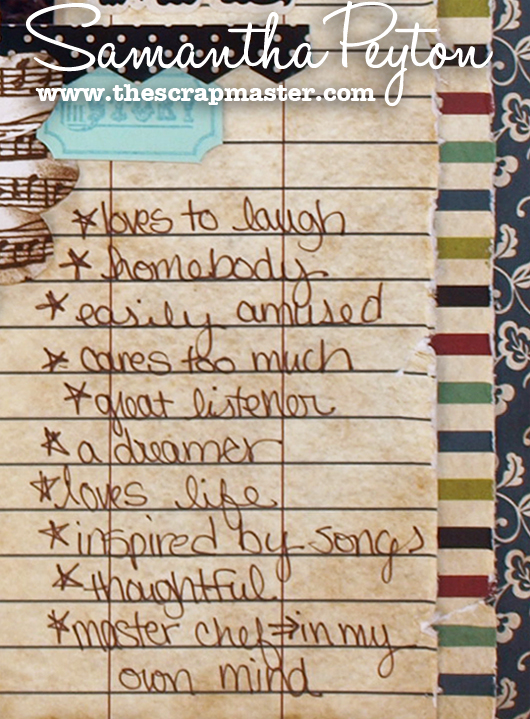 Samantha Peyton
www.thescrapmaster.com
*loves to laugh
*homebody
*easily amused
*cares too much
*great listener
*a dreamer
*loves life
*inspired by songs
*thoughtful
*master chef⇒in my
own mind